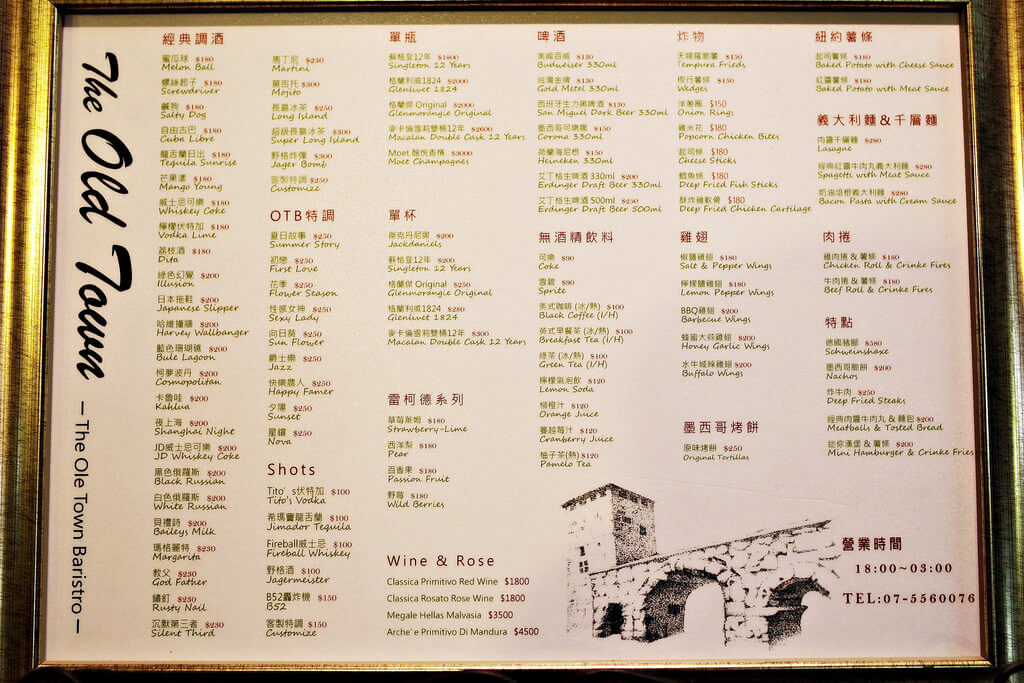 The Old Town
—The Ole Town Baristro—
經典調酒
蜜瓜球 $180
Melon Ball
螺絲起子 $180
Screwdriver
鹹狗 $180
Salty Dog
自由古巴 $180
Cuba Libre
龍舌蘭日出 $180
Tequila Sunrise
芒果漾 $180
Mango Young
威士忌可樂 $180
Whiskey Coke
檸檬伏特加 $180
Vodka Lime
荔枝酒 $180
Dita
綠色幻覺 $200
Illusion
日本拖鞋 $200
Japanese Slipper
哈維撞牆 $200
Harvey Wallbanger
藍色珊瑚礁 $200
Bule Lagoon
柯夢波丹 $200
Cosmopolitan
卡魯哇 $200
Kahlua
夜上海 $200
Shanghai Night
JD威士忌可樂 $200
JD Whiskey Coke
黑色俄羅斯 $200
Black Russian
白色俄羅斯 $200
White Russian
貝禮詩 $200
Baileys Milk
瑪格麗特 $230
Margarita
教父 $230
God Father
鏽釘 $230
Rusty Nail
沉默第三者 $230
Silent Third
馬丁尼 $230
Martini
莫吉托 $300
Mojito
長島冰茶 $250
Long Island
超級長島冰茶 $300
Super Long Island
野格炸彈 $300
Jager Bomb
客製特調 $250
Customize
OTB特調
夏日故事 $250
Summer Story
初戀 $250
First Love
花季 $250
Flower Season
性感女神 $250
Sexy Lady
向日葵 $250
Sun Flower
爵士樂 $250
Jazz
快樂農人 $250
Happy Famer
夕陽 $250
Sunset
星鑽 $250
Nova
Shots
Tito's伏特加 $100
Tito's Vodka
希瑪竇龍舌蘭 $100
Jimador Tequila
Fireball威士忌 $100
Fireball Whiskey
野格酒 $100
Jagermeister
B52轟炸機 $150
B52
客製特調 $150
Customize
單瓶
蘇格登12年 $1800
Singleton 12 Years
格蘭利威1824 $2000
Glenlivet 1824
格蘭傑 Original $2000
Glenmorangie Original
麥卡倫雪莉雙桶12年 $2600
Macalan Double Cask 12 Years
Moet 酩悅香檳 $3000
Moet Champagnes
單杯
傑克丹尼爾 $200
Jackdaniels
蘇格登12年 $200
Singleton 12 Years
格蘭傑 Original $250
Glenmorangie Original
格蘭利威1824 $280
Glenlivet 1824
麥卡倫雪莉雙桶12年 $300
Macalan Double Cask 12 Years
雷柯德系列
草莓萊姆 $180
Strawberry-Lime
西洋梨 $180
Pear
百香果 $180
Passion Fruit
野莓 $180
Wild Berries
Wine & Rose
Classica Primitivo Red Wine $1800
Classica Rosato Rose Wine $1800
Megale Hellas Malvasia $3500
Arche' e Primitivo Di Mandura $4500
啤酒
美國百威 $130
Budweiser 330ml
台灣金牌 $130
Gold Metel 330ml
西班牙生力黑啤酒 $130
San Miguel Dark Beer 330ml
墨西哥可樂娜 $150
Corona 330ml
荷蘭海尼根 $150
Heineken 330ml
艾丁格生啤酒 330ml $200
Erdinger Draft Beer 330ml
艾丁格生啤酒 500ml $250
Erdinger Draft Beer 500ml
無酒精飲料
可樂 $90
Coke
雪碧 $90
Sprite
美式咖啡 (冰/熱) $100
Black Coffee (I/H)
英式早餐茶 (冰/熱) $100
Breakfast Tea (I/H)
綠茶 (冰/熱) $100
Green Tea (I/H)
檸檬氣泡飲 $120
Lemon Soda
柳橙汁 $120
Orange Juice
蔓越莓汁 $120
Cranberry Juice
柚子茶(熱) $120
Pamelo Tea
炸物
天婦羅脆薯 $150
Tempura Frieds
楔行薯條 $150
Wedges
洋蔥圈 $150
Onion Rings
雞米花 $180
Popcorn Chicken Bites
起司條 $180
Cheese Sticks
鱈魚條 $180
Deep Fried Fish Sticks
酥炸雞軟骨 $180
Deep Fried Chicken Cartilage
雞翅
椒鹽雞翅 $180
Salt & Pepper Wings
檸檬鹽雞翅 $180
Lemon Pepper Wings
BBQ雞翅 $200
Barbecue Wings
蜂蜜大蒜雞翅 $200
Honey Garlic Wings
水牛城辣雞翅 $200
Buffalo Wings
墨西哥烤餅
原味烤餅 $250
Original Tortillas
紐約薯條
起司薯條 $180
Baked Potato with Cheese Sauce
紅醬薯條 $180
Baked Potato with Meat Sauce
義大利麵&千層麵
肉醬千層麵 $280
Lasagne
經典紅醬牛肉丸義大利麵 $280
Spagetti with Meat Sauce
奶油培根義大利麵 $280
Bacon Pasta with Cream Sauce
肉捲
雞肉捲 & 薯條 $180
Chicken Roll & Crinke Fires
牛肉捲 & 薯條 $180
Beef Roll & Crinke Fires
特點
德國豬腳 $580
Schweinshaxe
墨西哥脆餅 $200
Nachos
炸牛肉 $250
Deep Fried Steaks
經典肉醬牛肉丸 & 麵包 $200
Meatballs & Tosted Bread
迷你漢堡 & 薯條 $200
Mini Hamburger & Crinke Fries
營業時間
18:00~03:00
TEL:07-5560076